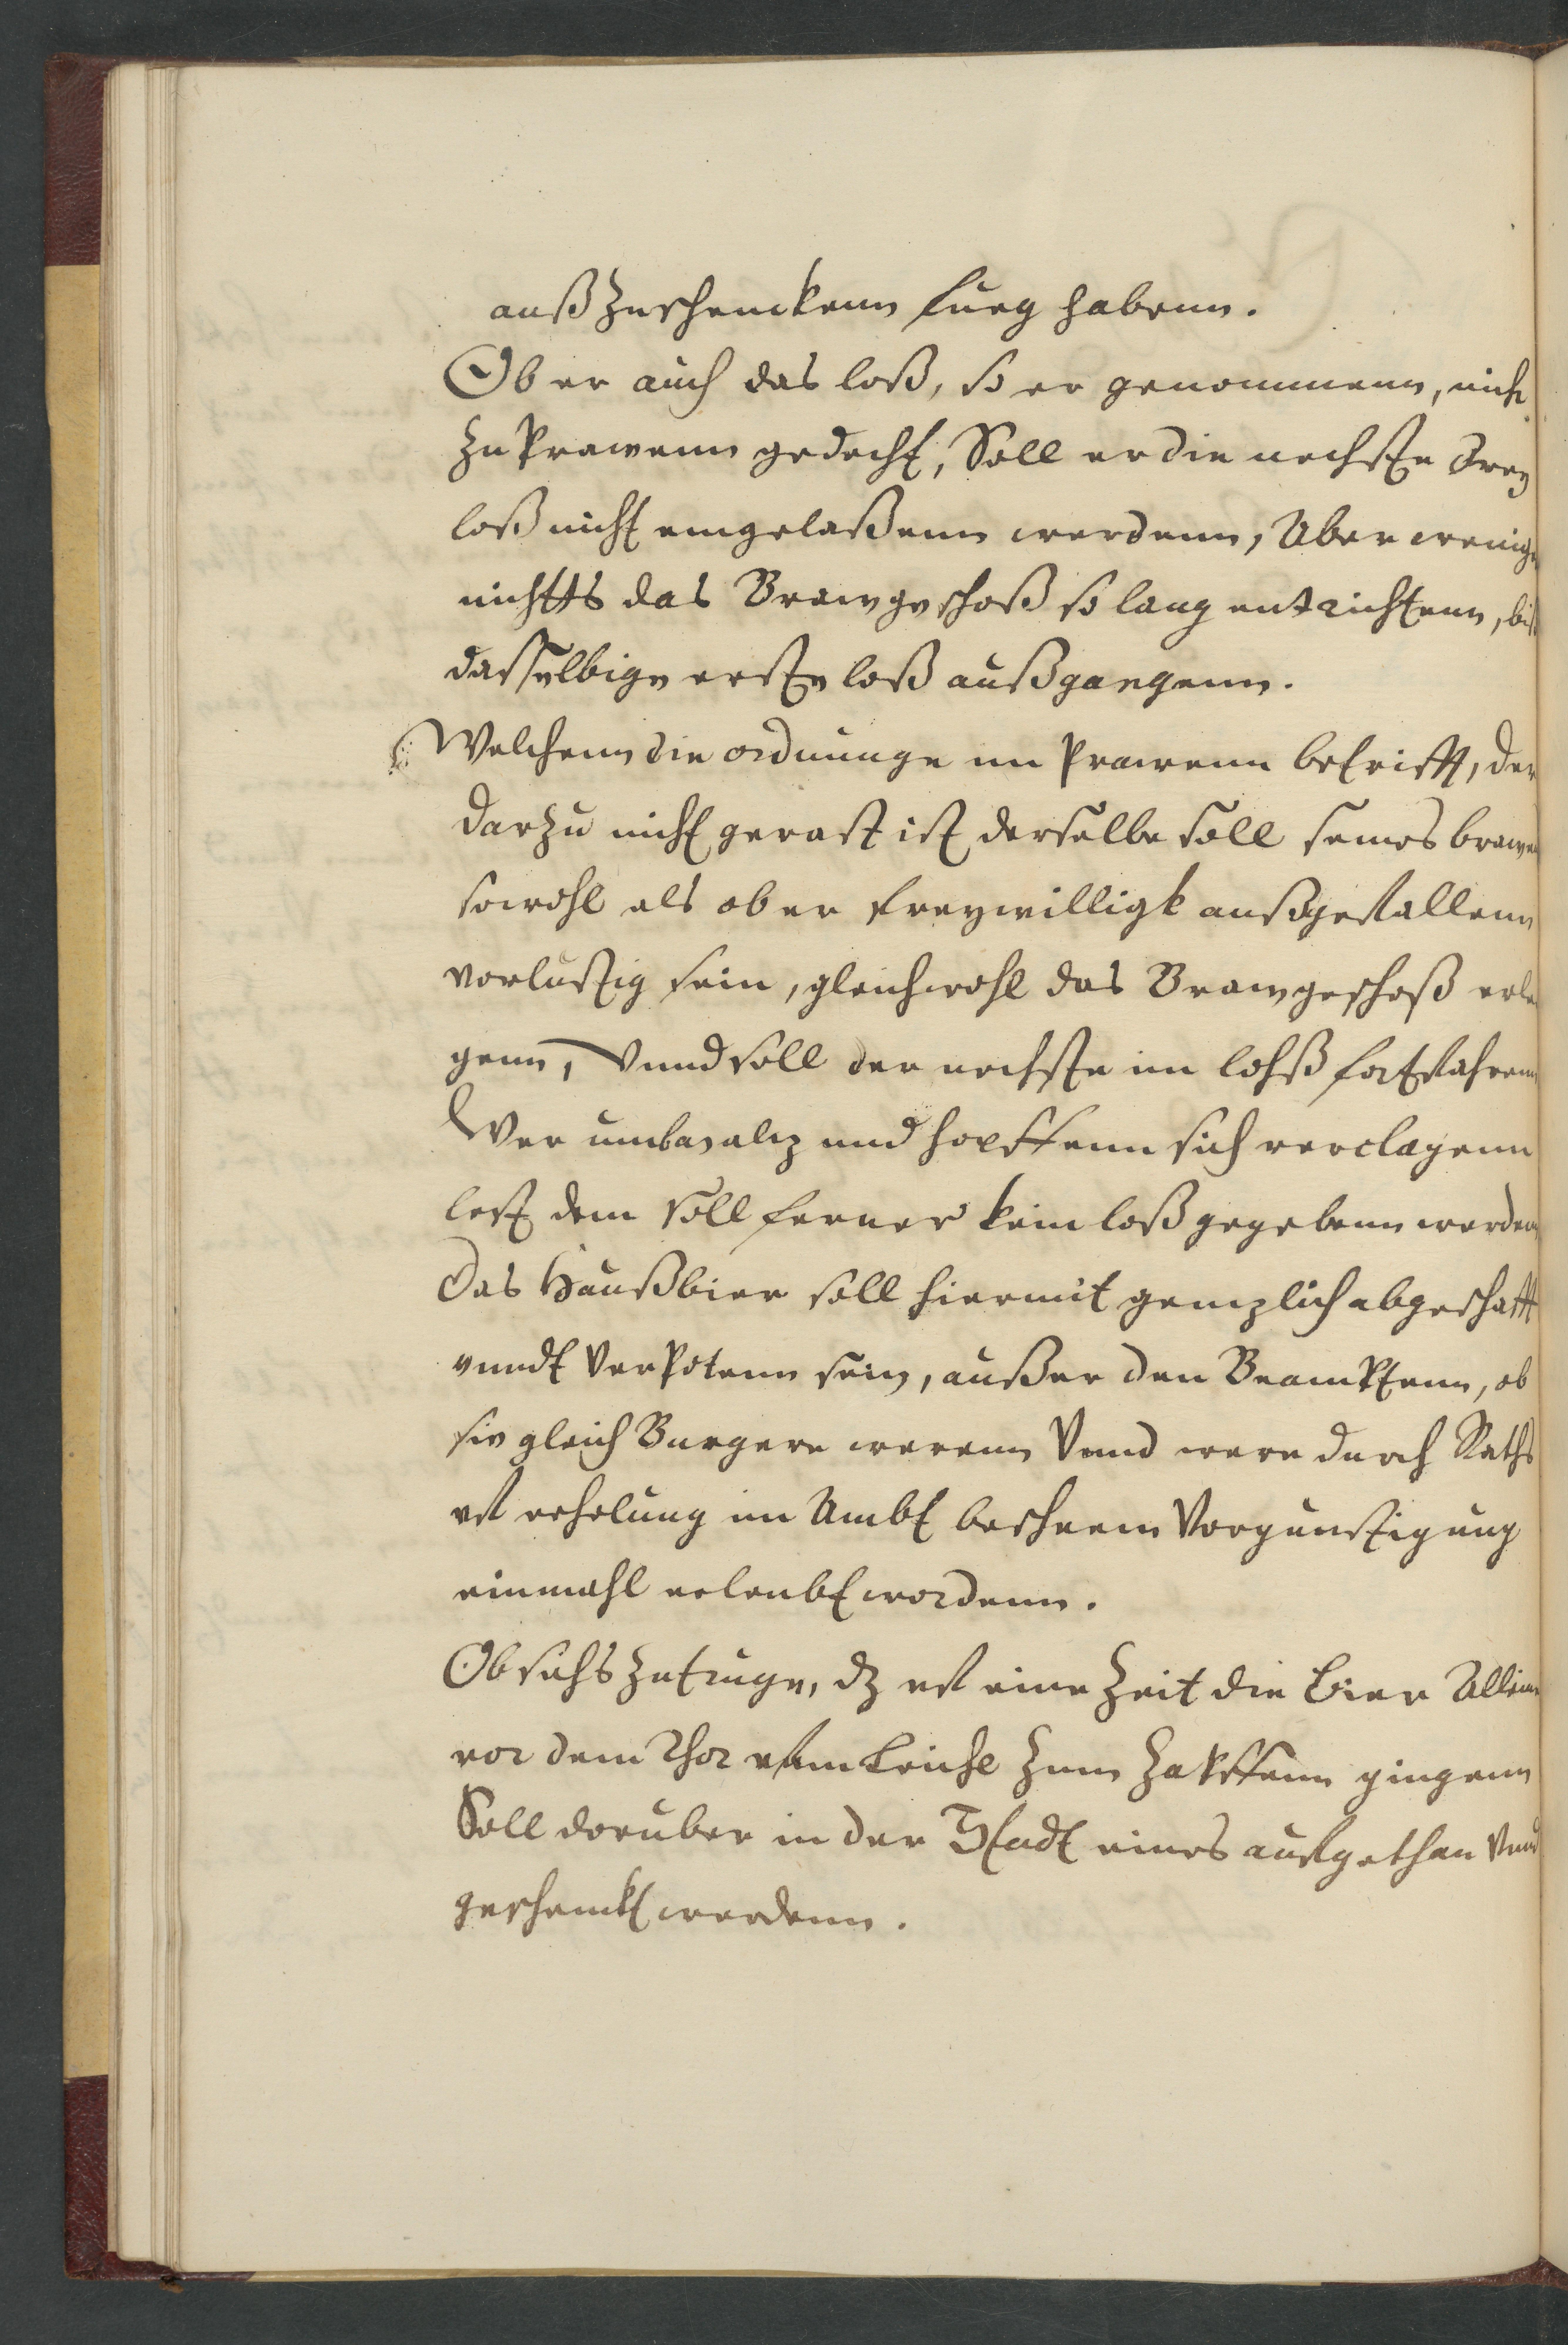 außzuschenckenn fueg habenn.
Ob er auch das loß, so er genommenn, nicht
zu Prawenn gedecht, Soll er die nechste drey
loß nicht eingelaßenn werdenn, Aber wenig
nichtts das Brawgeschoß so lang entrichtenn, biß
dasselbige erste loß außgangenn.
Welchenn die ordnunge im Prawenn betrifft, der
darzu nicht gerast ist derselbe soll seines brawen
sowohl als ob er freywilligk außgefallenn
vorlustig sein, gleichwohl das Brawgeschoß erle
genn, Vnnd soll der nechste im lohß fortfahrenn
Wer umb malz und hopffenn sich verclagenn
lest dem soll ferner kein loß gegebenn werden
Das Haußbier soll hiermit genzlich abgeschafft
vnndt verpotenn sein, außer den Beamptenn, ob
sie gleich Burgere werenn Vnnd were durch Raths
erholung im Ambt Vorgunstigung
einmahl erleubt wordenn.
Ob sichs zutruge, dz uf eine Zeit die Bier Allein
vor dem Thor zum Zapffenn gingenn
Soll doruber in der Stadt eines aufgethan Vnnd
geschenckt werdenn.